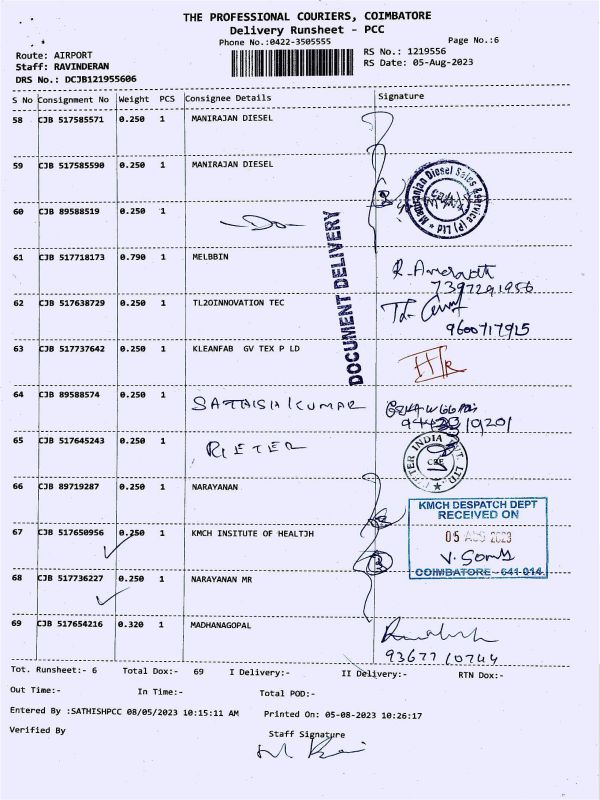 THE PROFESSIONAL COURIERS, COIMBATORE
Delivery Runsheet - PCC
Phone No.:0422-3505555
Page No.:6
Route: AIRPORT
RS No.: 1219556
Staff: RAVINDERAN
RS Date: 05-Aug-2023
DRS No.: DCJB121955606
S No Consignment No Weight PCS Consignee Details Signature
58 CJB 517585571 0.250 1 MANIRAJAN DIESEL
59 CJB 517585590 0.250 1 MANIRAJAN DIESEL
60 CJB 89588519 0.250 1 -Do-
DOCUMENT DELIVERY
61 CJB 517718173 0.790 1 MELBBIN
7397291956
62 CJB 517638729 0.250 1 TL2OINNOVATION TEC
9600717915
63 CJB 517737642 0.250 1 KLEANFAB GV TEX P LD
64 CJB 89588574 0.250 1 SATHISH KUMAR
65 CJB 517645243 0.250 1 RIETER
66 CJB 89719287 0.250 1 NARAYANAN
KMCH DESPATCH DEPT
RECEIVED ON
67 CJB 517650956 0.250 1 KMCH INSITUTE OF HEALTJH
05 AUG 2023
68 CJB 517736227 0.250 1 NARAYANAN MR
COIMBATORE - 641 014.
69 CJB 517654216 0.320 1 MADHANAGOPAL
Tot. Runsheet:- 6 Total Dox:- 69 I Delivery:- II Delivery:- RTN Dox:-
Out Time:- In Time:- Total POD:-
Entered By :SATHISHPCC 08/05/2023 10:15:11 AM Printed On: 05-08-2023 10:26:17
Verified By Staff Signature